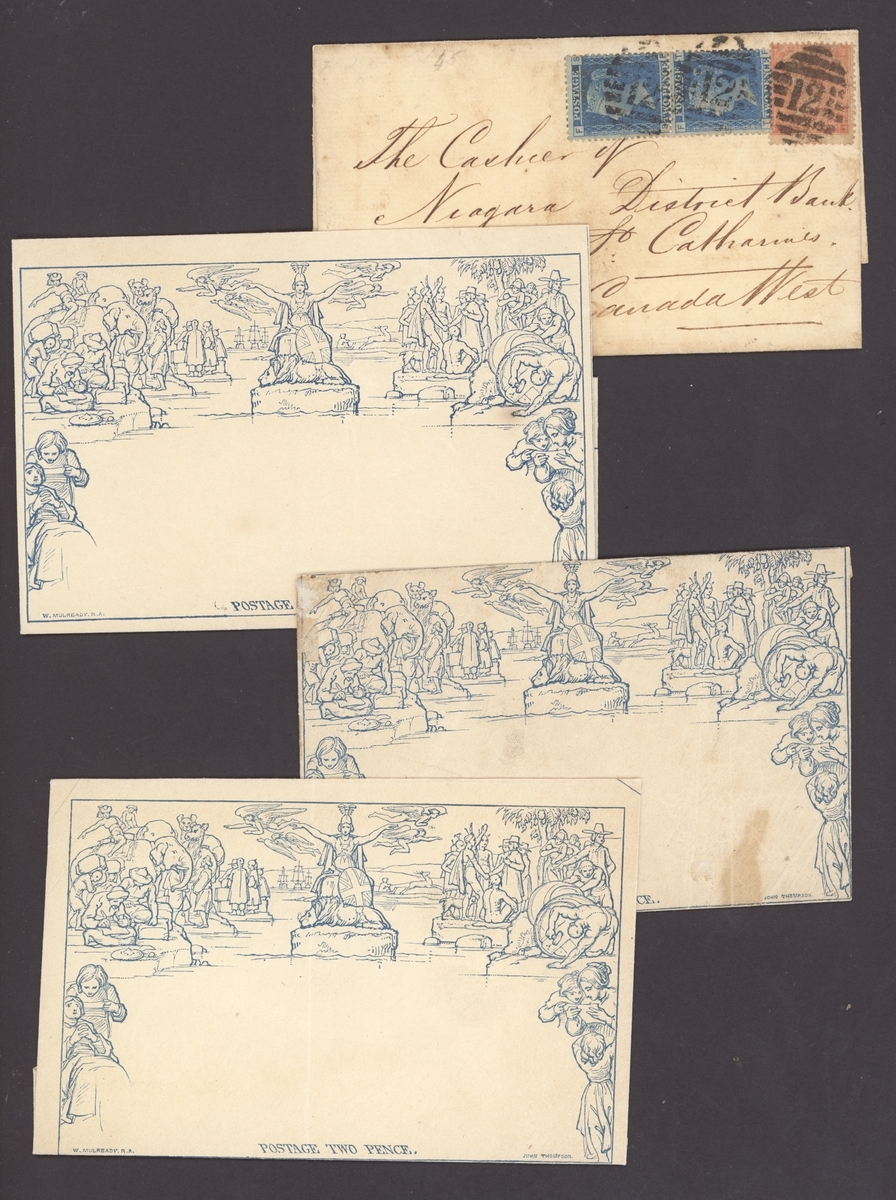 45
POSTAGE
TWO PENCE
POSTAGE
TWO PENCE
F
F
12
12
The Cashier of
Niagara District Bank.
St Catharines.
Canada West
W. MULREADY, R.A.
POSTAGE
CE.
JOHN THOMPSON.
W. MULREADY, R.A.
POSTAGE TWO PENCE.
JOHN THOMPSON.